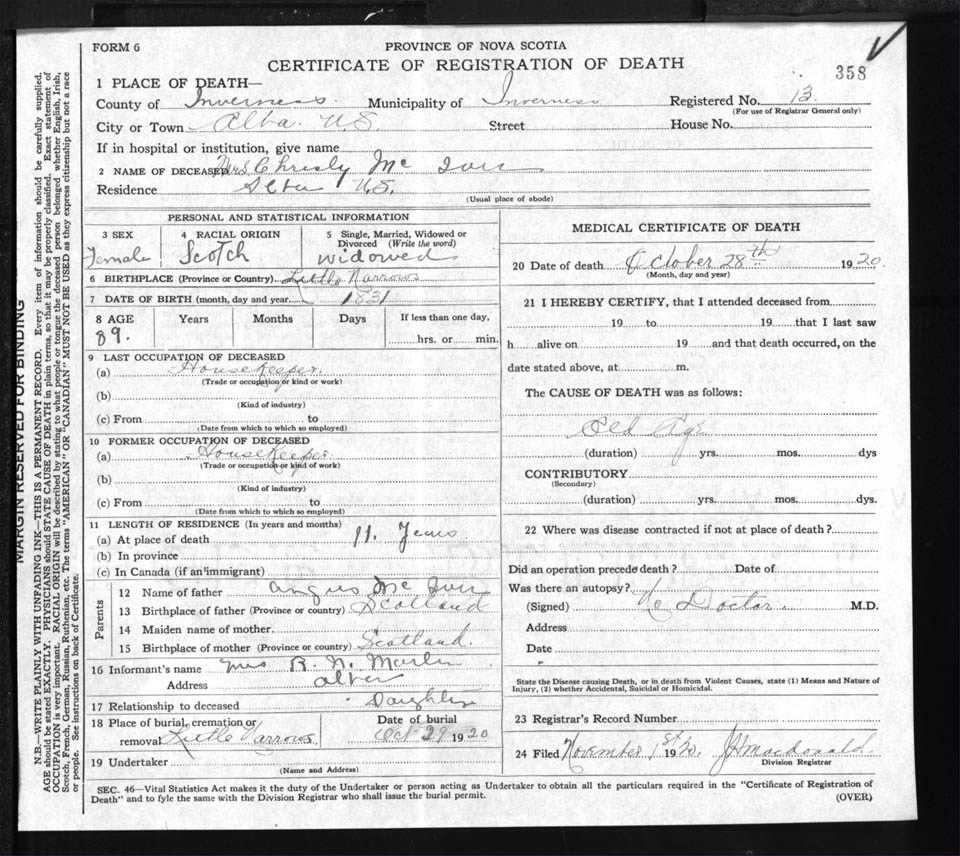 FORM 6
PROVINCE OF NOVA SCOTIA
CERTIFICATE OF REGISTRATION OF DEATH
358
1 PLACE OF DEATH—
County of Inverness Municipality of Inverness Registered No. 13
(For use of Registrar General only)
City or Town Alba N.S. Street House No.
If in hospital or institution, give name
2 NAME OF DECEASED Mrs Christy Mc Iver
Residence Alba N.S.
(Usual place of abode)
PERSONAL AND STATISTICAL INFORMATION
3 SEX
Female
4 RACIAL ORIGIN
Scotch
5 Single, Married, Widowed or
Divorced (Write the word)
widowed
6 BIRTHPLACE (Province or Country) Little Narrows
7 DATE OF BIRTH (month, day and year) 1831
8 AGE Years Months Days If less than one day,
89. hrs. or min.
9 LAST OCCUPATION OF DECEASED
(a) House Keeper.
(Trade or occupation or kind or work)
(b)
(Kind of industry)
(c) From to
(Date from which to which so employed)
10 FORMER OCCUPATION OF DECEASED
(a) House Keeper
(Trade or occupation or kind of work)
(b)
(Kind of industry)
(c) From to
(Date from which to which so employed)
11 LENGTH OF RESIDENCE (In years and months)
(a) At place of death 11. Years
(b) In province
(c) In Canada (if an immigrant)
Parents
12 Name of father Angus Mc Iver
13 Birthplace of father (Province or country) Scotland
14 Maiden name of mother
15 Birthplace of mother (Province or country) Scotland.
16 Informant's name Mrs R. N.
Address Alba
17 Relationship to deceased Daughter
18 Place of burial, cremation or
removal Little Narrows.
Date of burial
Oct 29 1920
19 Undertaker
(Name and Address)
MEDICAL CERTIFICATE OF DEATH
20 Date of death October 28th 1920
(Month, day and year)
21 I HEREBY CERTIFY, that I attended deceased from
19 to 19 that I last saw
h alive on 19 and that death occurred, on the
date stated above, at m.
The CAUSE OF DEATH was as follows:
Old Age
(duration) yrs. mos. dys
CONTRIBUTORY
(Secondary)
(duration) yrs. mos. dys.
22 Where was disease contracted if not at place of death?
Did an operation precede death? Date of
Was there an autopsy?
(Signed) No Doctor. M.D.
Address
Date
State the Disease causing Death, or in death from Violent Causes, state (1) Means and Nature of
Injury, (2) whether Accidental, Suicidal or Homicidal.
23 Registrar's Record Number
24 Filed November 1st 1920. J H Macdonald.
Division Registrar
SEC. 46—Vital Statistics Act makes it the duty of the Undertaker or person acting as Undertaker to obtain all the particulars required in the "Certificate of Registration of
Death" and to fyle the same with the Division Registrar who shall issue the burial permit.
(OVER)
MARGIN RESERVED FOR BINDING
N.B.—WRITE PLAINLY WITH UNFADING INK—THIS IS A PERMANENT RECORD. Every item of information should be carefully supplied.
AGE should be stated EXACTLY. PHYSICIANS should STATE CAUSE OF DEATH in plain terms, so that it may be properly classified. Exact statement of
OCCUPATION is very important. RACIAL ORIGIN will be described by stating to what people or tongue the deceased person belonged whether English, Irish,
Scotch, French, German, Russian, Ruthenian, etc. The terms "AMERICAN" OR "CANADIAN" MUST NOT BE USED as they express citizenship but not a race
or people. See instructions on back of Certificate.